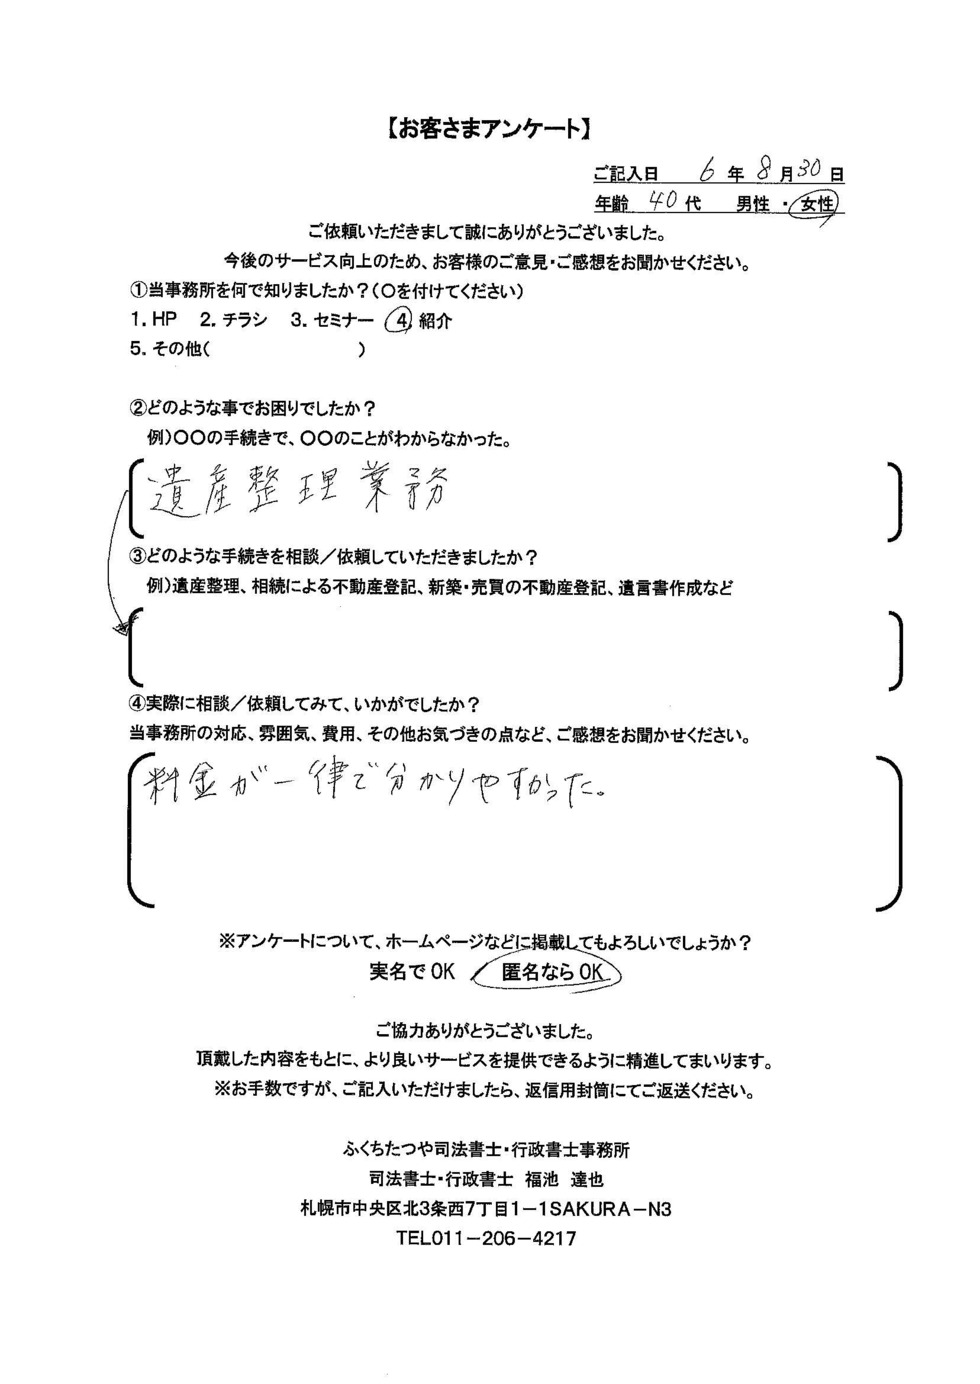 【お客さまアンケート】
ご記入日 6年8月30日
年齢 40代 男性・女性
ご依頼いただきまして誠にありがとうございました。
今後のサービス向上のため、お客様のご意見・ご感想をお聞かせください。
①当事務所を何で知りましたか？(〇を付けてください)
1. HP 2. チラシ 3. セミナー 4. 紹介
5. その他( )
②どのような事でお困りでしたか？
例)〇〇の手続きで、〇〇のことがわからなかった。
遺産整理業務
③どのような手続きを相談／依頼していただきましたか？
例)遺産整理、相続による不動産登記、新築・売買の不動産登記、遺言書作成など
④実際に相談／依頼してみて、いかがでしたか？
当事務所の対応、雰囲気、費用、その他お気づきの点など、ご感想をお聞かせください。
料金が一律で分かりやすかった。
※アンケートについて、ホームページなどに掲載してもよろしいでしょうか？
実名でOK ／ 匿名ならOK
ご協力ありがとうございました。
頂戴した内容をもとに、より良いサービスを提供できるように精進してまいります。
※お手数ですが、ご記入いただけましたら、返信用封筒にてご返送ください。
ふくちたつや司法書士・行政書士事務所
司法書士・行政書士 福池 達也
札幌市中央区北3条西7丁目1－1SAKURA－N3
TEL011－206－4217